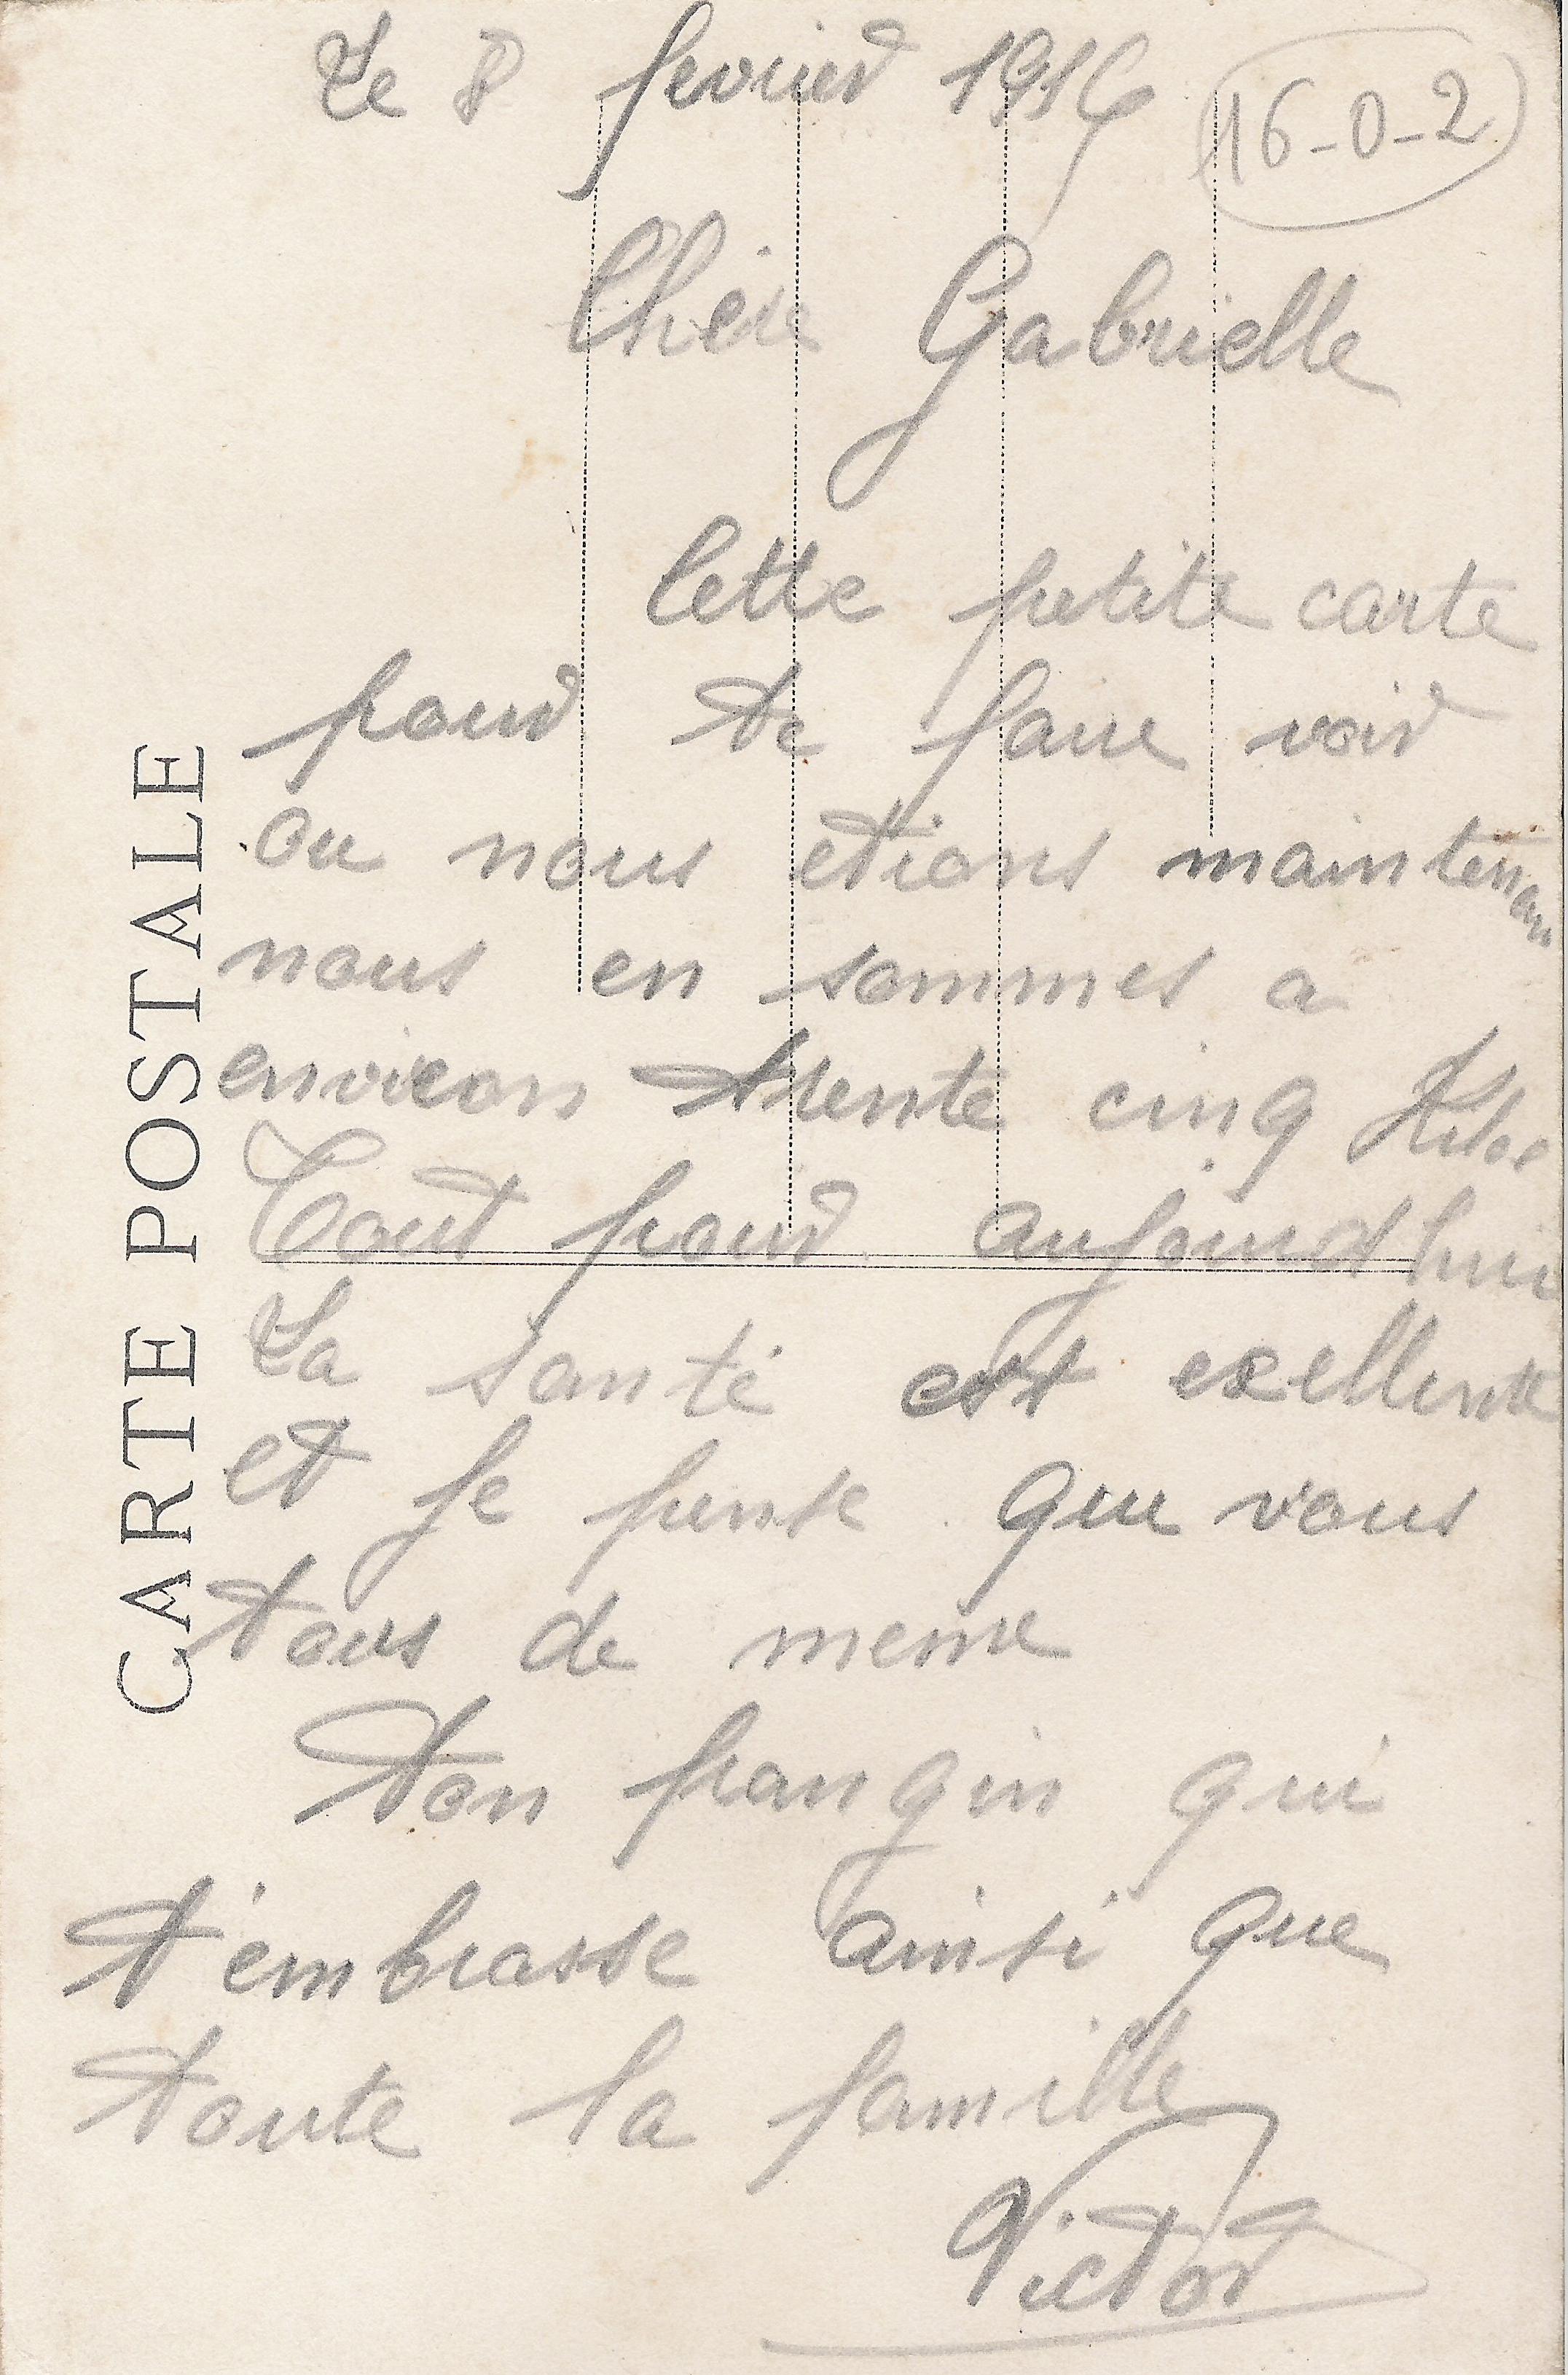 Le 8 fevrier 1916 (16-0-2)
Chère Gabrielle
Cette petite carte
pour te faire voir
ou nous etions maintenan
nous en sommes a
environ trente cinq Kilo
Tout pour aujourd hui
La santé est exellente
et je pense que vous
tous de meme
Ton frangin qui
t'embrasse ainsi que
toute la famille
Victor
CARTE POSTALE